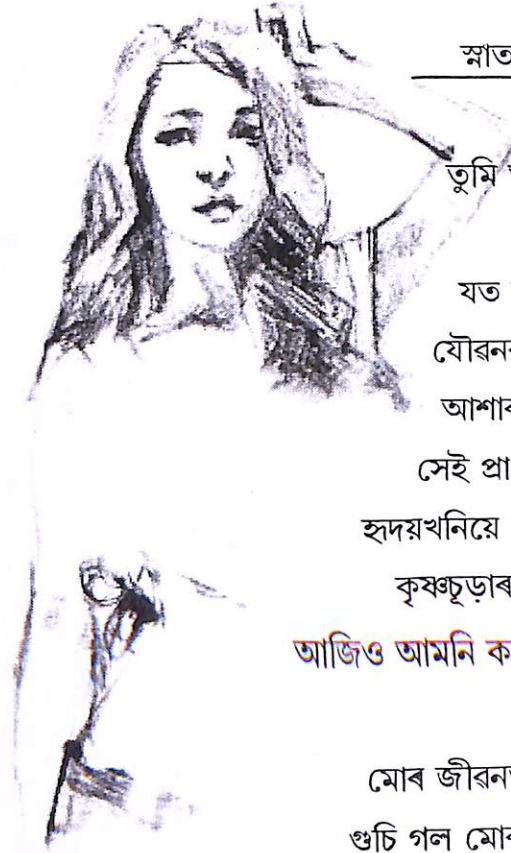 স্নাত
তুমি
যত
যৌৱনৰ
আশাৰ
সেই প্ৰা
হৃদয়খনিয়ে
কৃষ্ণচূড়াৰ
আজিও আমনি ক
মোৰ জীৱনত
গুচি গল মোৰ